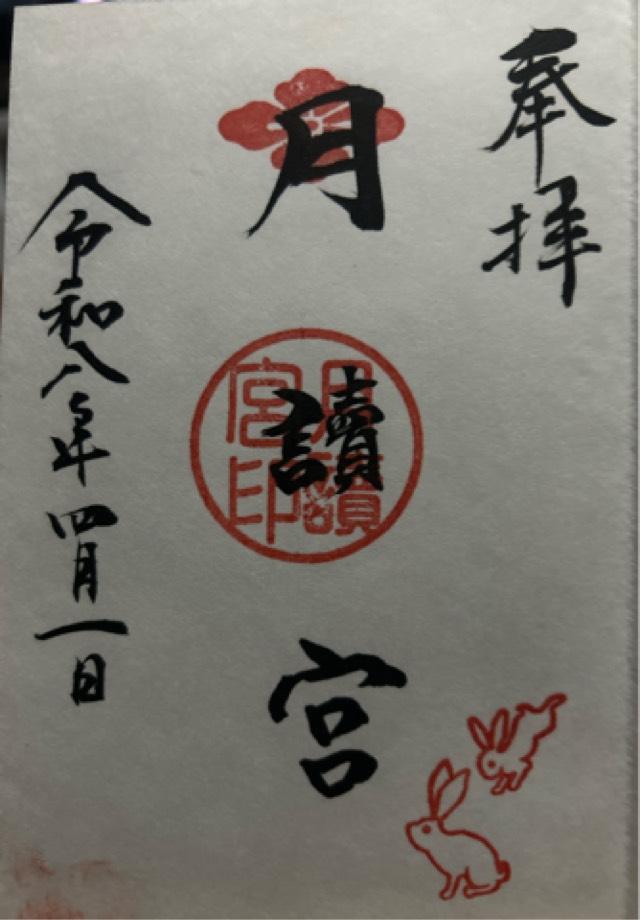 奉拝
月讀宮
月讀宮印
令和八年四月一日